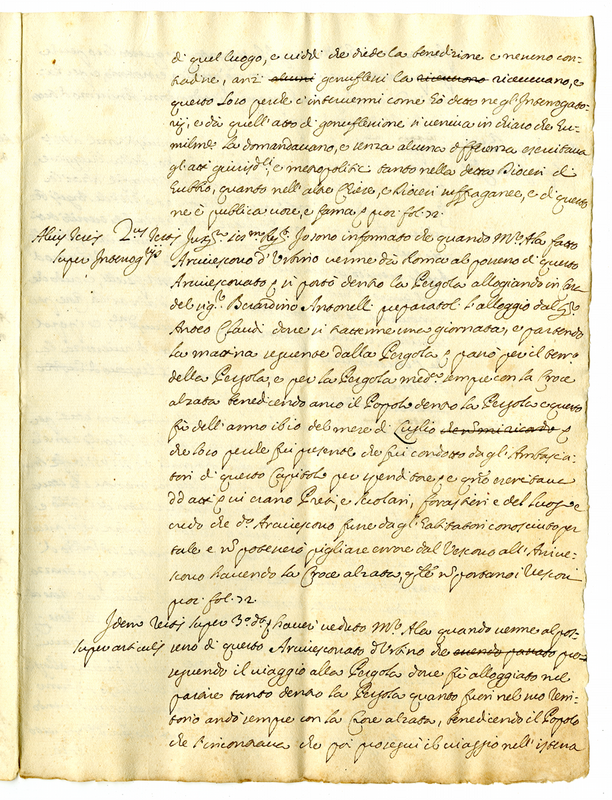 di quel luogo, e viddi che diede la benedizione e nenuno con-
tradire, anzi alcuni genuflessi la riceverono ricevevano, e
questo loro perche c'intervenni come hò detto negl'Interrogato-
rij, e dà quell'atto di genuflessione si veniva in chiaro che hu-
milmte la domandavano, e senza alcuna differenza esercitava
gl'atti e metropolitici tanto nella detta Diocesi di
Gubbio, quanto nell'altre Chiese, e Diocesi suffraganee, e di questo
ne è publica voce, e fama fol. 72.
Alius Testis 2us Testis Io sono informato che quando Mr Ala fatto
super Interrog. Arcivescovo d'Urbino venne dà Roma al possesso di questo
Arcivescovato si portò dentro la Pergola allogiando in Casa
del sigr Antonelli preparatoli l'alloggio dal
Anteo Claudi dove si trattenne una giornata, e partendo
la mattina seguente dalla Pergola passò per il terro
della Pergola, e per la Pergola medma sempre con la Croce
alzata benedicendo anco il Popolo dentro la Pergola e questo
fù dell'anno 1610 del mese di Luglio
che loro perche fui presente che fui condotto dagl'Ambascia-
tori di questo Capitolo per spenditore, e qdo esercitava
dd atti vi erano Preti, e secolari, forastieri e del luogo e
credo che do Arcivescovo fusse dagl'habitatori conosciuto per
tale e n potevero pigliare errore dal Vescovo all'Arcive-
scovo havendo la Croce alzata, qle n portano i Vescovi
fol. 72.
Idem Testis super 3o haver veduto Mr Ala quando venne al pos-
super articulis sesso di questo Arcivescovato d'Urbino che essendo passato pro-
seguendo il viaggio alla Pergola dove fù alloggiato nel
passare tanto dentro la Pergola quanto fuori nel suo Terri-
torio andò sempre con la Croce alzata, benedicendo il Popolo
che l'incontrava che poi prosegui il viaggio nell'istessa